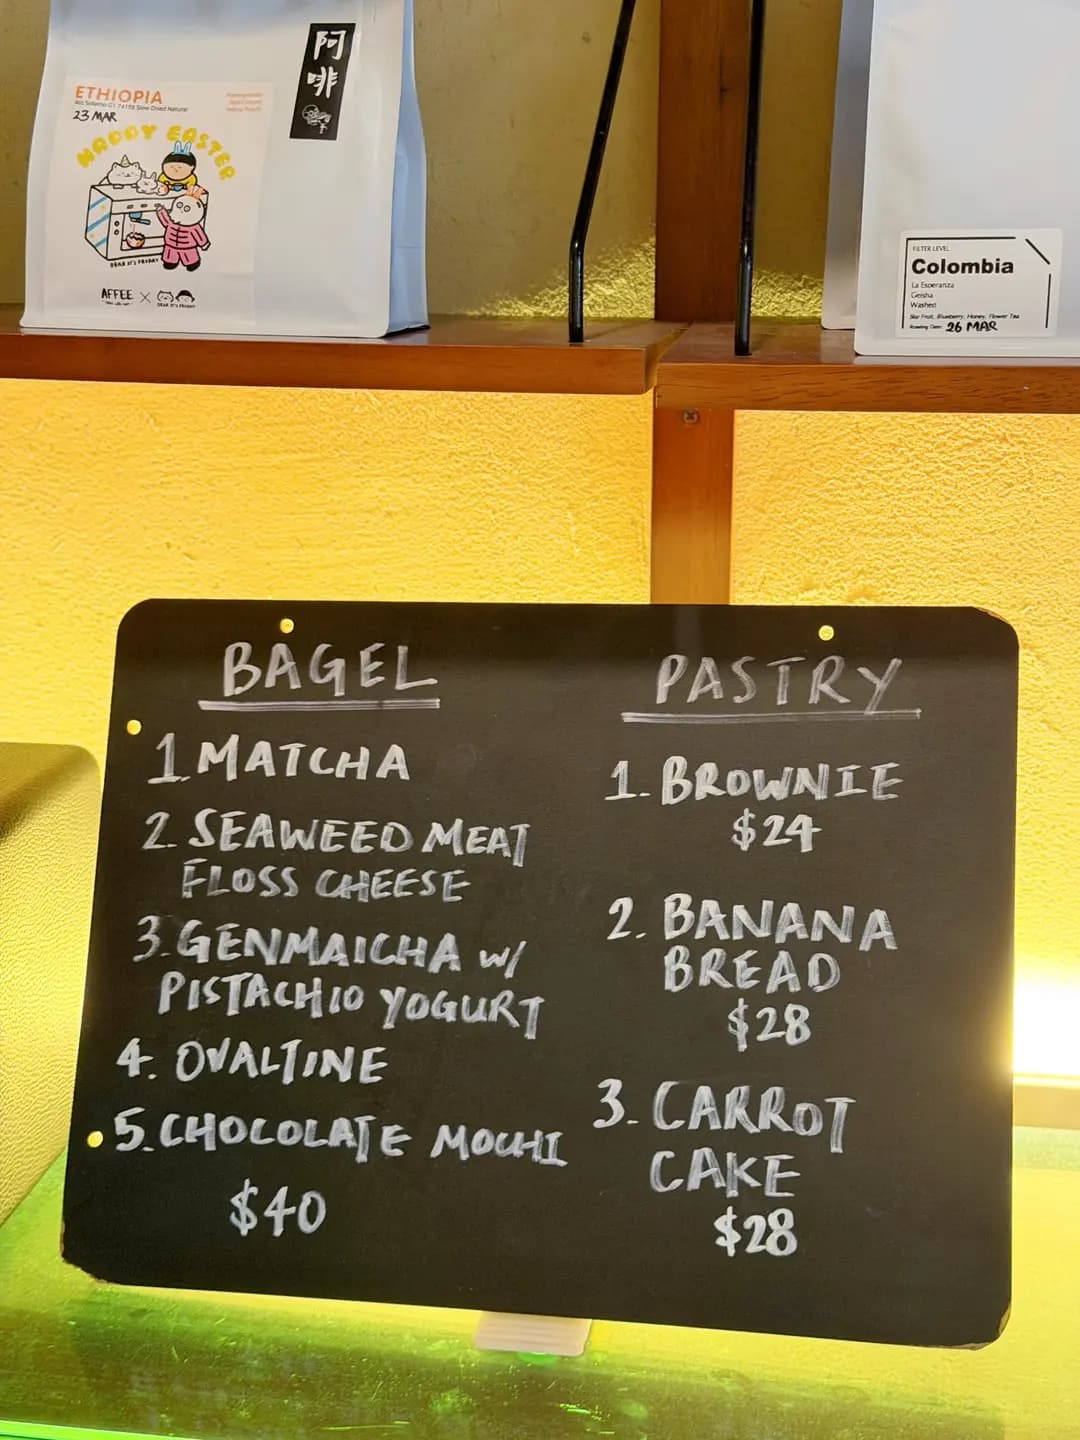 ETHIOPIA
23 MAR
HAPPY EASTER
阿
啡
DEAR IT'S FRIDAY
AFFEE X
DEAR IT'S FRIDAY
FILTER LEVEL
Colombia
La Esperanza
Geisha
Washed
Star Fruit, Blueberry, Honey, Flower Tea
Roasting Date: 26 MAR
BAGEL
1. MATCHA
2. SEAWEED MEAT
FLOSS CHEESE
3. GENMAICHA w/
PISTACHIO YOGURT
4. OVALTINE
5. CHOCOLATE MOCHI
$40
PASTRY
1. BROWNIE
$24
2. BANANA
BREAD
$28
3. CARROT
CAKE
$28